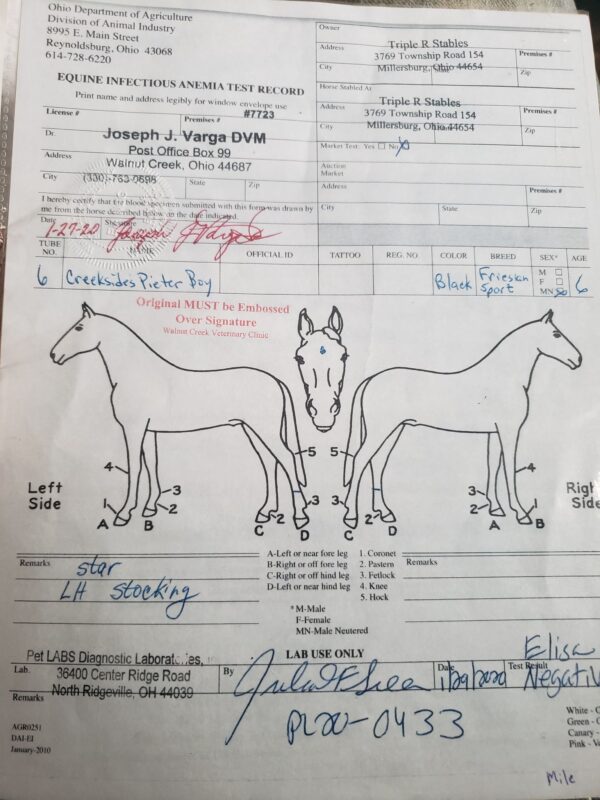 Ohio Department of Agriculture
Division of Animal Industry
8995 E. Main Street
Reynoldsburg, Ohio 43068
614-728-6220
EQUINE INFECTIOUS ANEMIA TEST RECORD
Print name and address legibly for window envelope use
License # Premises # #7723
Dr. Joseph J. Varga DVM
Post Office Box 99
Address Walnut Creek, Ohio 44687
City (330)-763-0698 State Zip
I hereby certify that the blood specimen submitted with this form was drawn by
me from the horse described below on the date indicated.
Date Signature
1-27-20 Joseph J Varga
Owner
Triple R Stables
Address 3769 Township Road 154 Premises #
City Millersburg, Ohio 44654 Zip
Horse Stabled At
Triple R Stables
Address 3769 Township Road 154 Premises #
City Millersburg, Ohio 44654 Zip
Market Test: Yes No X
Auction
Market
Address Premises #
City State Zip
TUBE NO. NAME OFFICIAL ID TATTOO REG. NO COLOR BREED SEX* AGE
6 Creeksides Pieter Boy Black Friesian Sport M F MN 6
Original MUST be Embossed
Over Signature
Walnut Creek Veterinary Clinic
Left
Side
Right
Side
4 3 1 2 A B
5 3 2 C D
5 3 2 C D
4 3 2 1 A B
Remarks star
LH stocking
A-Left or near fore leg
B-Right or off fore leg
C-Right or off hind leg
D-Left or near hind leg
1. Coronet
2. Pastern
3. Fetlock
4. Knee
5. Hock
* M-Male
F-Female
MN-Male Neutered
Remarks
LAB USE ONLY
Pet LABS Diagnostic Laboratories,
Lab. 36400 Center Ridge Road
North Ridgeville, OH 44039
By
Date
Test Result Elisa
Negativ
Remarks
0433
AGR0251
DAI-EI
January-2010
White - C
Green - C
Canary -
Pink - V
Mile